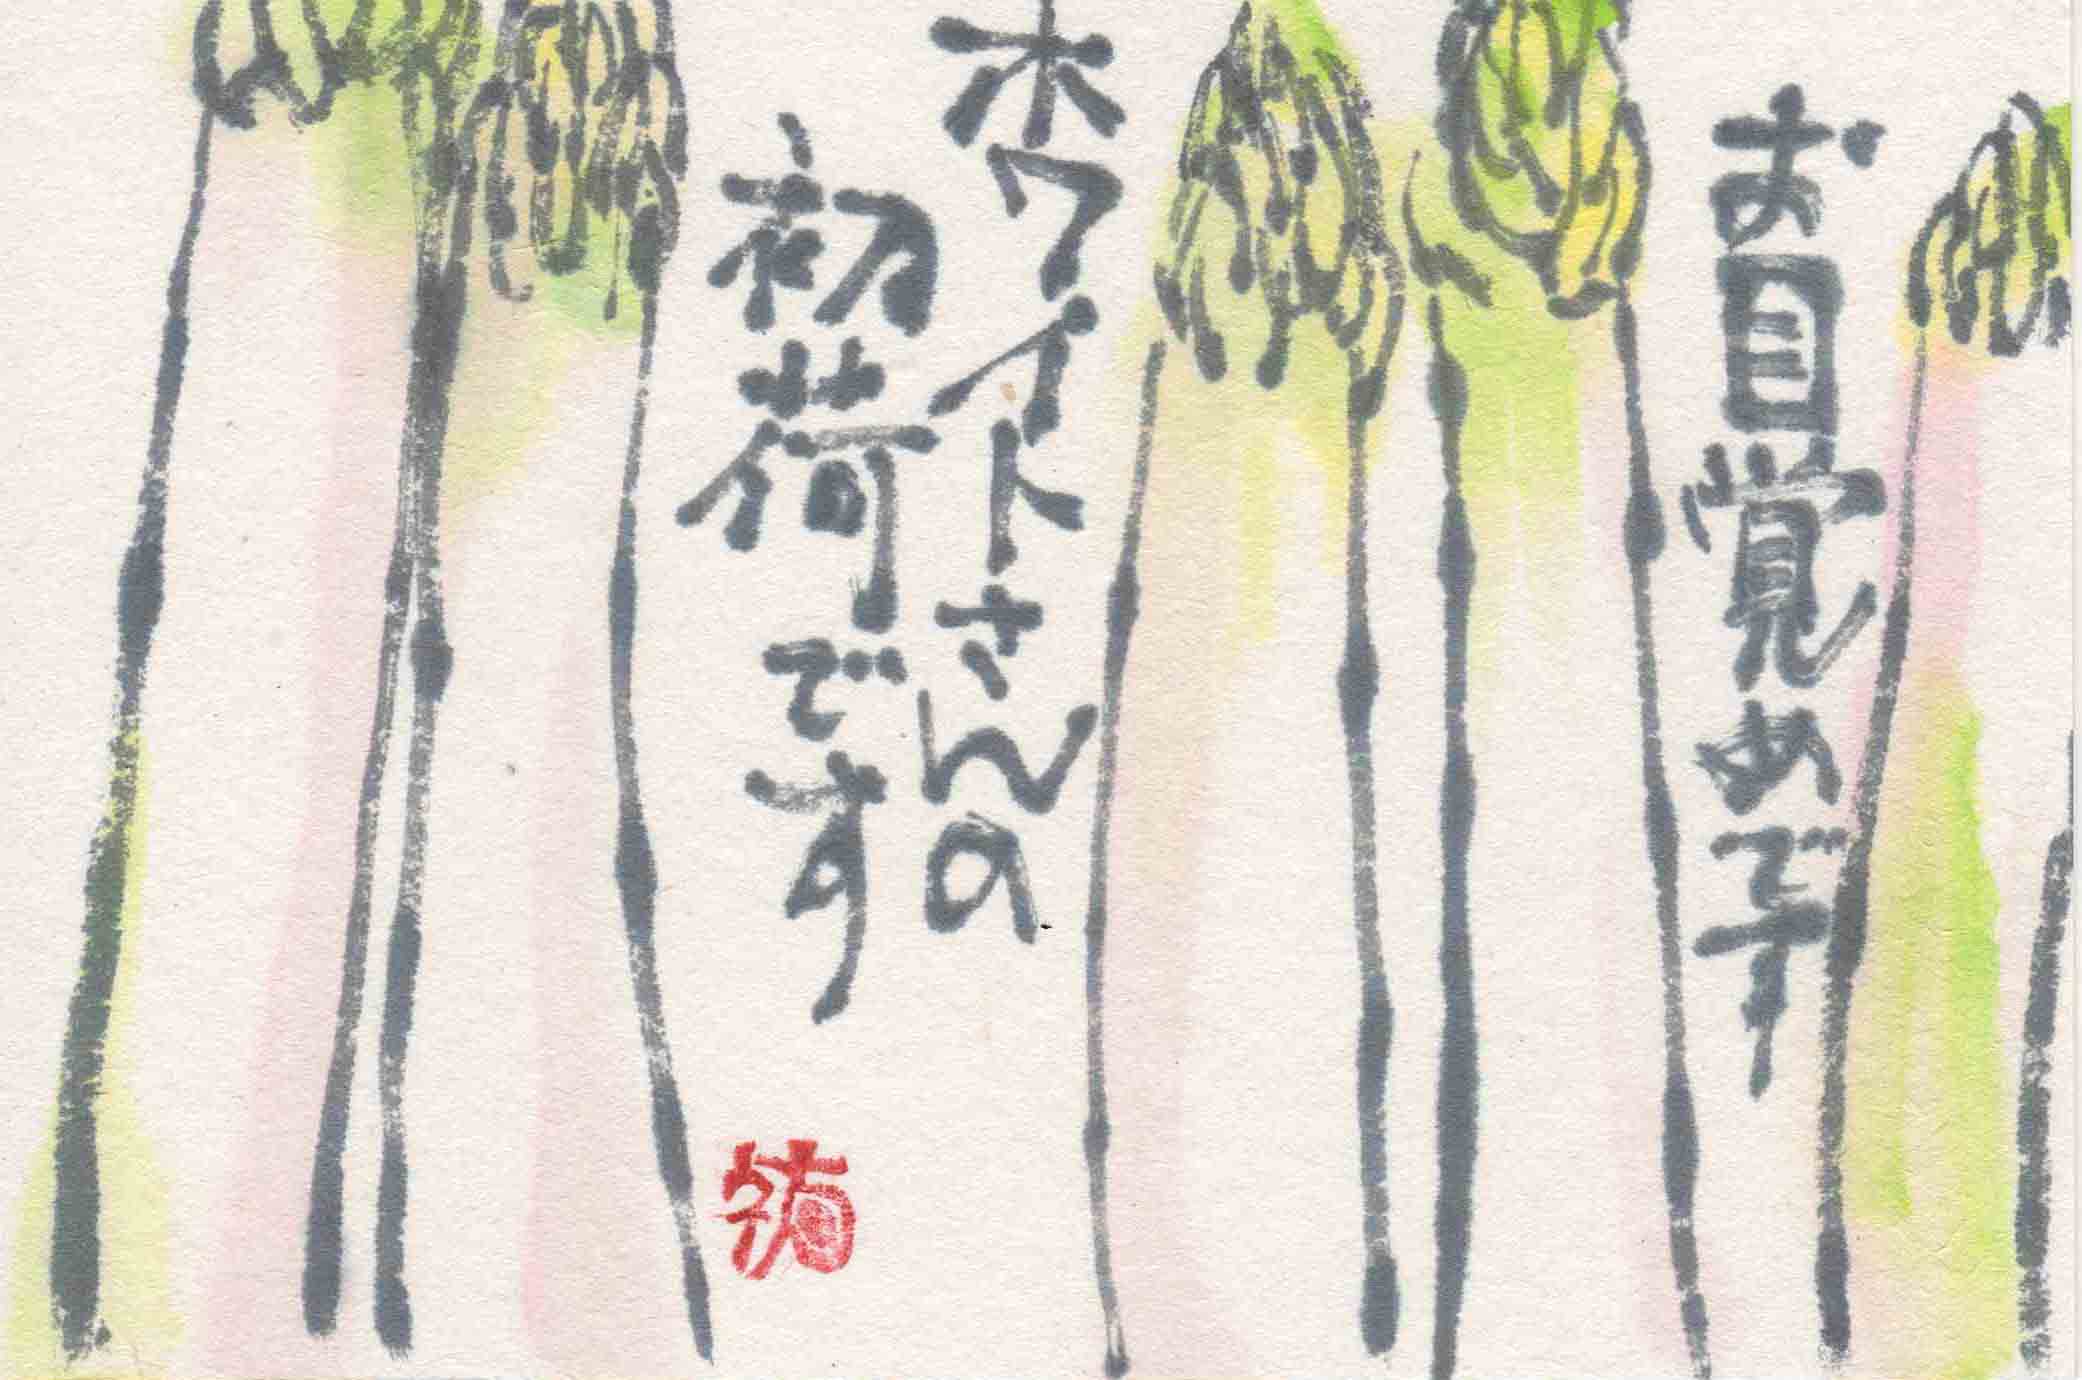 お目覚めです
ホワイトさんの
初荷です